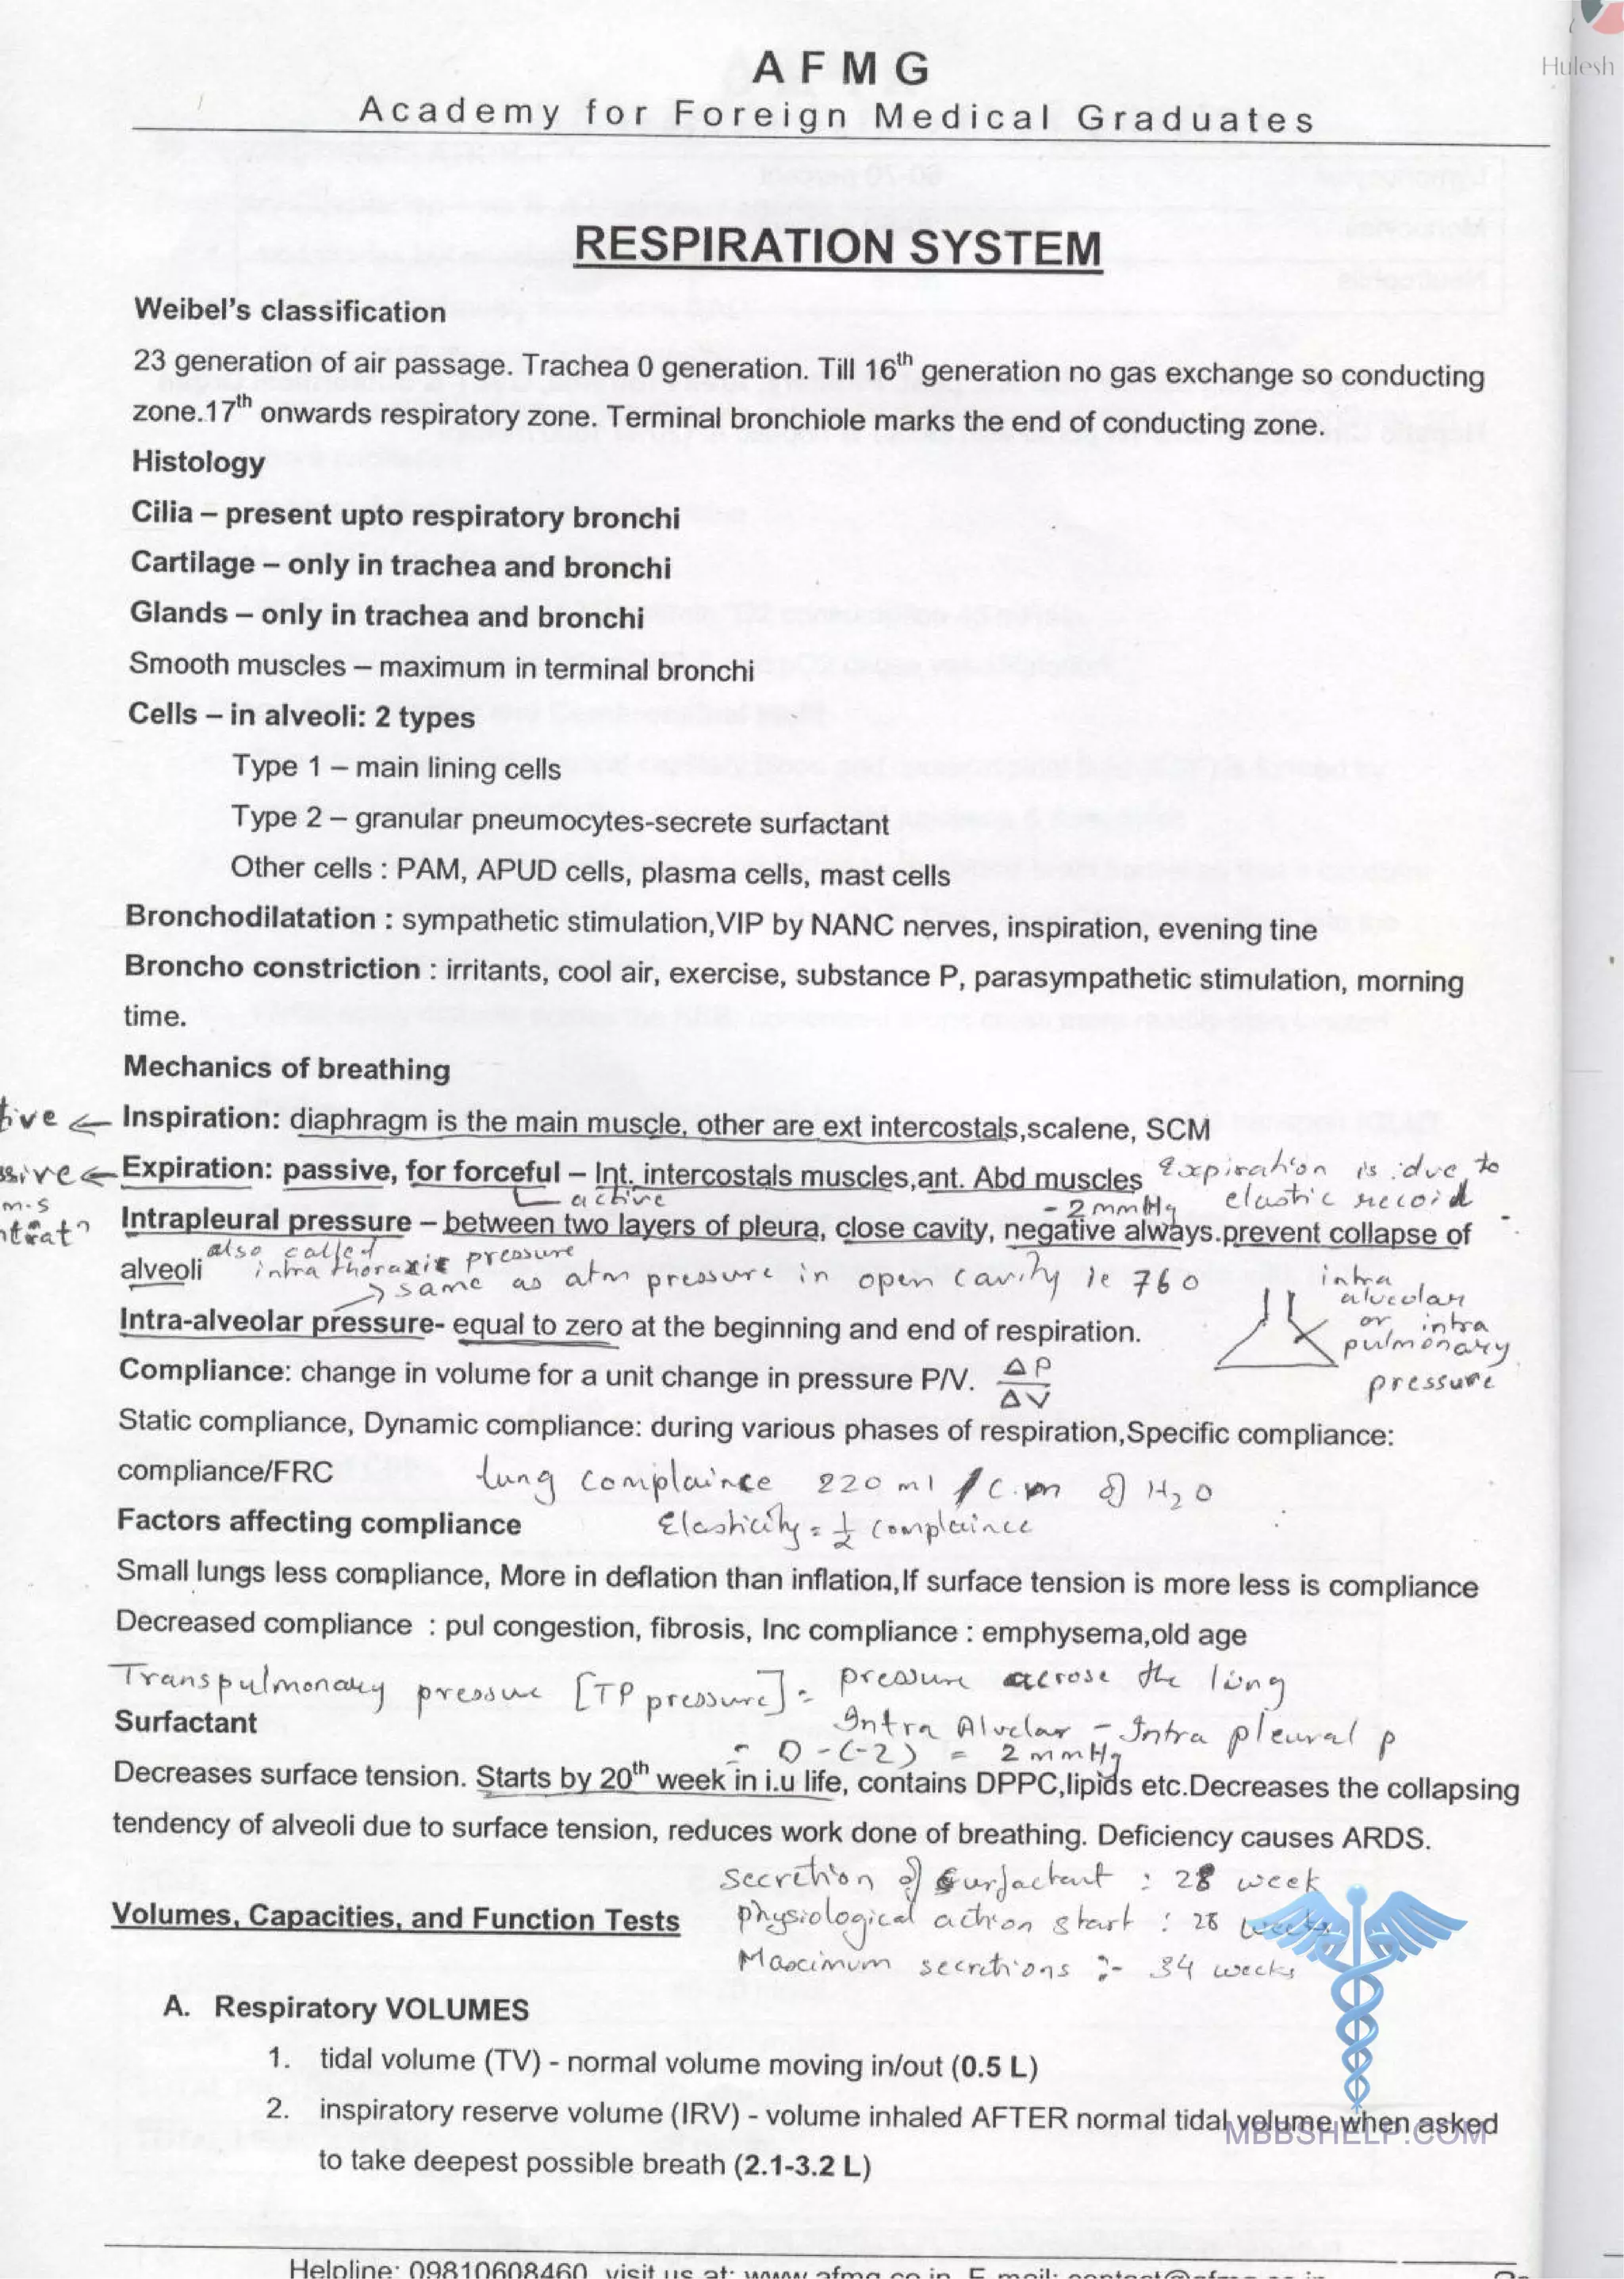 Hulesh
A F M G
Academy for Foreign Medical Graduates
RESPIRATION SYSTEM
Weibel's classification
23 generation of air passage. Trachea 0 generation. Till 16th generation no gas exchange so conducting
zone.17th onwards respiratory zone. Terminal bronchiole marks the end of conducting zone.
Histology
Cilia – present upto respiratory bronchi
Cartilage – only in trachea and bronchi
Glands – only in trachea and bronchi
Smooth muscles – maximum in terminal bronchi
Cells – in alveoli: 2 types
Type 1 – main lining cells
Type 2 – granular pneumocytes-secrete surfactant
Other cells : PAM, APUD cells, plasma cells, mast cells
Bronchodilatation : sympathetic stimulation,VIP by NANC nerves, inspiration, evening tine
Broncho constriction : irritants, cool air, exercise, substance P, parasympathetic stimulation, morning
time.
Mechanics of breathing
tive ← Inspiration: diaphragm is the main muscle, other are ext intercostals,scalene, SCM
ssive ← Expiration: passive, for forceful – Int. intercostals muscles,ant. Abd muscles Expiration is due to
active - 2 mmHg elastic recoil
Intrapleural pressure – between two layers of pleura, close cavity, negative always.prevent collapse of
also called intra thoraxic pressure
alveoli
→ same as atm pressure in open cavity ie 760
intra alveolar
or intra
pulmonary
pressure
Intra-alveolar pressure- equal to zero at the beginning and end of respiration.
Compliance: change in volume for a unit change in pressure P/V. ΔP/ΔV
Static compliance, Dynamic compliance: during various phases of respiration,Specific compliance:
compliance/FRC lung complaince 220 ml / c.m of H2O
Factors affecting compliance Elasticity = 1/2 complaince
Small lungs less compliance, More in deflation than inflation,If surface tension is more less is compliance
Decreased compliance : pul congestion, fibrosis, Inc compliance : emphysema,old age
Transpulmonary pressure [TP pressure] = pressure across the lung
Surfactant Intra Alvelar - Intra pleural p
= 0 - (-2) = 2 mmHg
Decreases surface tension. Starts by 20th week in i.u life, contains DPPC,lipids etc.Decreases the collapsing
tendency of alveoli due to surface tension, reduces work done of breathing. Deficiency causes ARDS.
Secretion of surfactant : 28 week
Volumes, Capacities, and Function Tests physiological action start : 28 weeks
Maximum secretions :- 34 weeks
A. Respiratory VOLUMES
1. tidal volume (TV) - normal volume moving in/out (0.5 L)
2. inspiratory reserve volume (IRV) - volume inhaled AFTER normal tidal volume when asked
MBBSHELP.COM
to take deepest possible breath (2.1-3.2 L)
Helpline: 09810608460, visit us at: www.afmg.co.in, E mail: